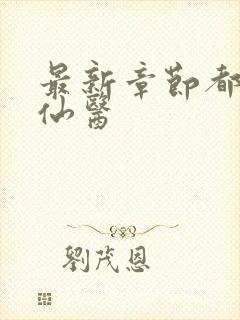 最新章節都
仙醫
劉茂恩